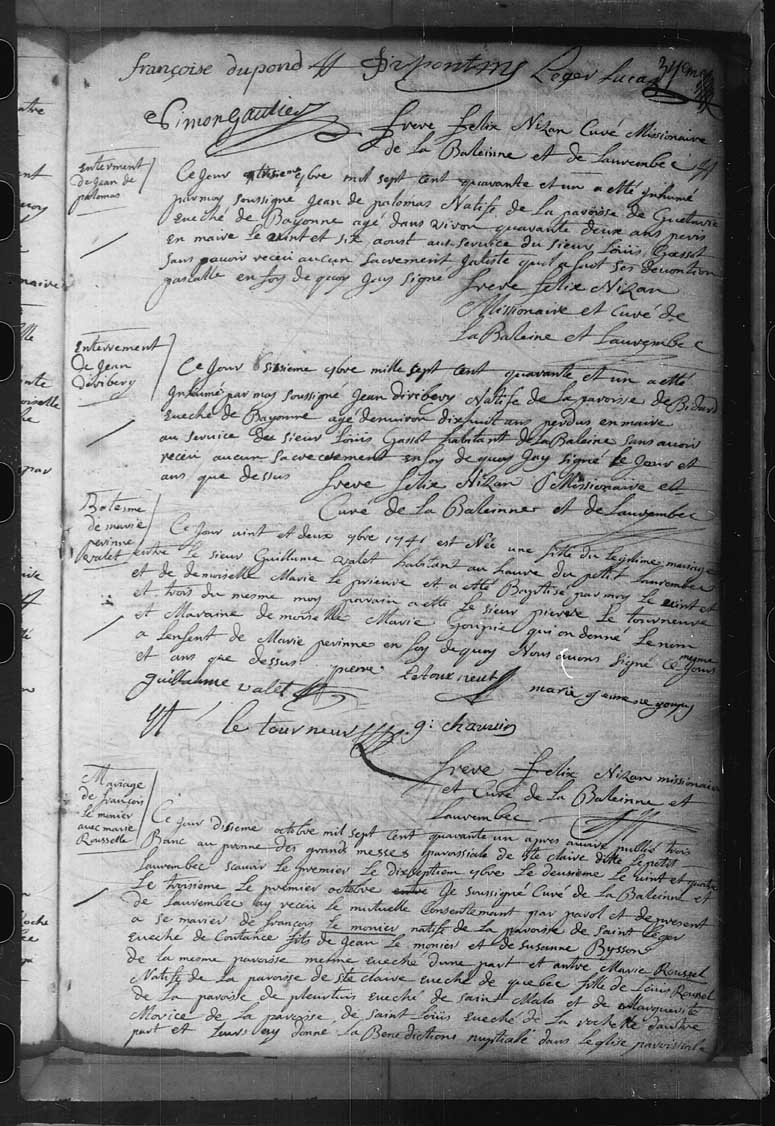 françoise dupond
Leger Lucas
Simon gaultier
frere felix Nizan Curé Missionaire
de La Baleinne et de Laurembec
Enterment
de Jean de
palomas
Ce Jour 7bre mil sept cent quarante et un a etté Inhumé
par moy soussigné Jean de palomas Natife de La paroisse de Guetarie
Eveché de Bayonne agé dans viron quarante deux ans peris
en maire Le vint et six aoust au service du sieur Loüis Gassot
sans pouvoir recéü aucun sacrement Jateste quil a fait ses devotion
pascalle en foy de quoy Jay signé
frere felix Nizan
Missionaire et Curé de
La Baleine et Laurembec
Enterrement
de Jean
diribery
Ce Jour sisieme 7bre mille sept cent quarante et un a etté
Inhumé par moy soussigné Jean diribery Natife de La paroisse de Bidard
Eveché de Bayonne agé denviron dixhuit ans perdus en maire
au service du sieur Loüis Gassot habitant de La Baleine sans avoir
recéü aucun sacrement en foy de quoy Jay signé Le Jour et
ans que dessus frere felix Nizan Missionaire et
Curé de La Baleinne et de Laurembec
Batesme
de marie
perinne
valet
Ce Jour vint et deux 7bre 1741 est Née une fille du Legitime mariage
entre Le sieur Guillaume valet habitant au havre du petit Laurembec
et de demoiselle Marie Le prieure et a etté Baptisé par moy Le vint et
et trois du mesme moy parain a etté Le sieur pierre Le tourneure
et Maraine demoiselle Marie Goupie qui on donné Le nom
a Lenfent de Marie perinne en foy de quoy Nous avons signé Ce Jours mesme
et ans que dessus
pierre Letourneur
guillaume valet
marie
le tourneur
g: chauvin
frere felix Nizan missionaire
et Curé de La Baleinne et
Laurembec
Mariage
de françois
Le monier
avec marie
Rousselle
Ce Jour disieme octobre mil sept cent quarante un apres avoire publié trois
Banc au pronne des grands messes paroissiale de ste claire ditte Le petit
Laurembec scavoir Le premier Le dixseptiem 7bre Le deusième Le vint et quatre
Le troisième Le premier octobre Je soussigné Curé de La Baleinne et
de Laurembec ay recéü Le mutuelle Consentement par parol et de present
a se marier de françois Le monier natife de La paroisse de Saint Leger
Eveché de Coutance fils de Jean Le monier et de Susanne Bysson
de La mesme paroisse mesme Eveché dune part et antre Marie Roussel
Natife de La paroisse de Ste claire Eveché de quebec fille de Loüis Roussel
de La paroisse de pleurtuis Eveché de saint Malo et de Marguerite
Morice de La paroisse de Saint Loüis Eveché de La rochelle dautre
part et Leurs ay donné La Benedictions nuptiale dans Leglise paroissiale